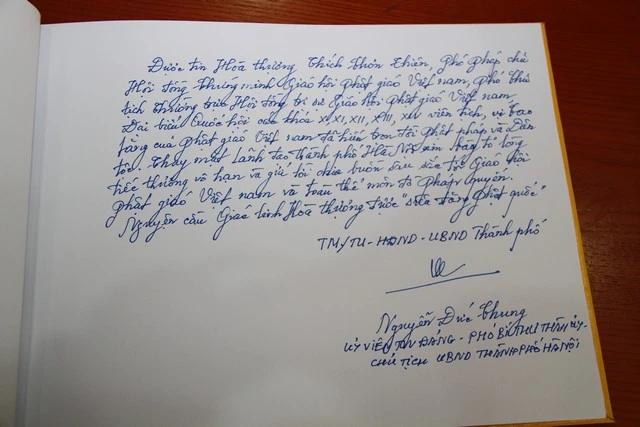 Được tin Hòa thượng Thích Thơn Thiện, Phó Pháp chủ
Hội đồng Chứng minh Giáo hội Phật giáo Việt nam, Phó Chủ
tịch Thường trực Hội đồng trị sự Giáo hội Phật giáo Việt Nam,
Đại biểu Quốc hội các khóa XI, XII, XIII, XIV viên tịch, vị cao
tăng của Phật giáo Việt nam đã hiến trọn đời Phật pháp và Dân
tộc. Thay mặt Lãnh đạo thành phố Hà Nội xin bày tỏ lòng
tiếc thương vô hạn và gửi lời chia buồn sâu sắc tới Giáo hội
Phật giáo Việt nam và toàn thể môn đồ Pháp quyến.
Nguyện cầu Giác linh Hòa thượng được "siêu đăng Phật quốc"
TM/TU - HĐND - UBND Thành phố
Nguyễn Đức Chung
ỦY VIÊN TW ĐẢNG - PHÓ BÍ THƯ THÀNH ỦY -
CHỦ TỊCH UBND THÀNH PHỐ HÀ NỘI